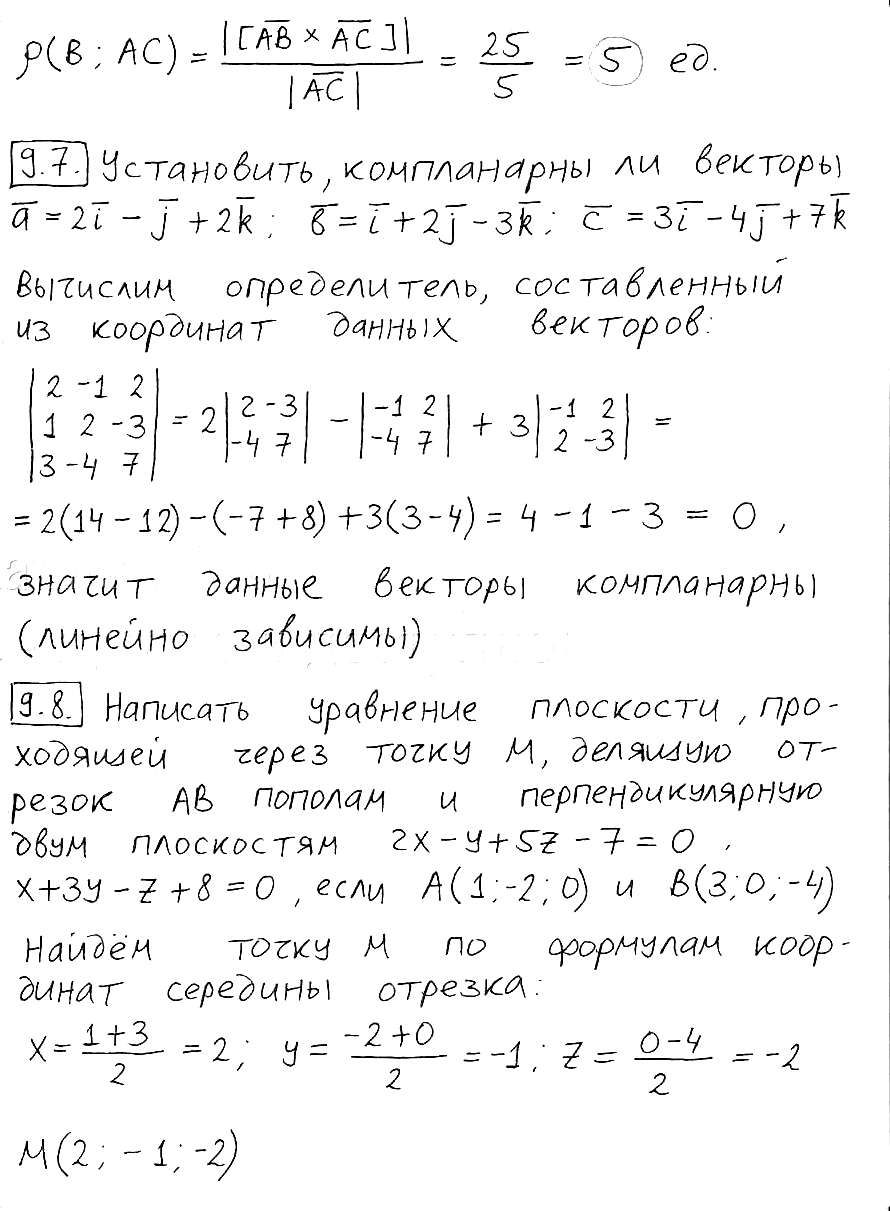 ρ(B; AC) = |[AB × AC]| / |AC| = 25/5 = 5 ед.
9.7. Установить, компланарны ли векторы
a̅ = 2i̅ - j̅ + 2k̅; в̅ = i̅ + 2j̅ - 3k̅; c̅ = 3i̅ - 4j̅ + 7k̅
Вычислим определитель, составленный
из координат данных векторов:
|2 -1 2|
|1 2 -3| = 2 |2 -3; -4 7| - |-1 2; -4 7| + 3 |-1 2; 2 -3| =
|3 -4 7|
= 2(14 - 12) - (-7 + 8) + 3(3 - 4) = 4 - 1 - 3 = 0,
значит данные векторы компланарны
(линейно зависимы)
9.8. Написать уравнение плоскости, про-
ходящей через точку M, делящую от-
резок AB пополам и перпендикулярную
двум плоскостям 2x - y + 5z - 7 = 0,
x + 3y - z + 8 = 0, если A(1; -2; 0) и B(3; 0; -4)
Найдём точку M по формулам коор-
динат середины отрезка:
x = (1+3)/2 = 2; y = (-2+0)/2 = -1; z = (0-4)/2 = -2
M(2; -1; -2)